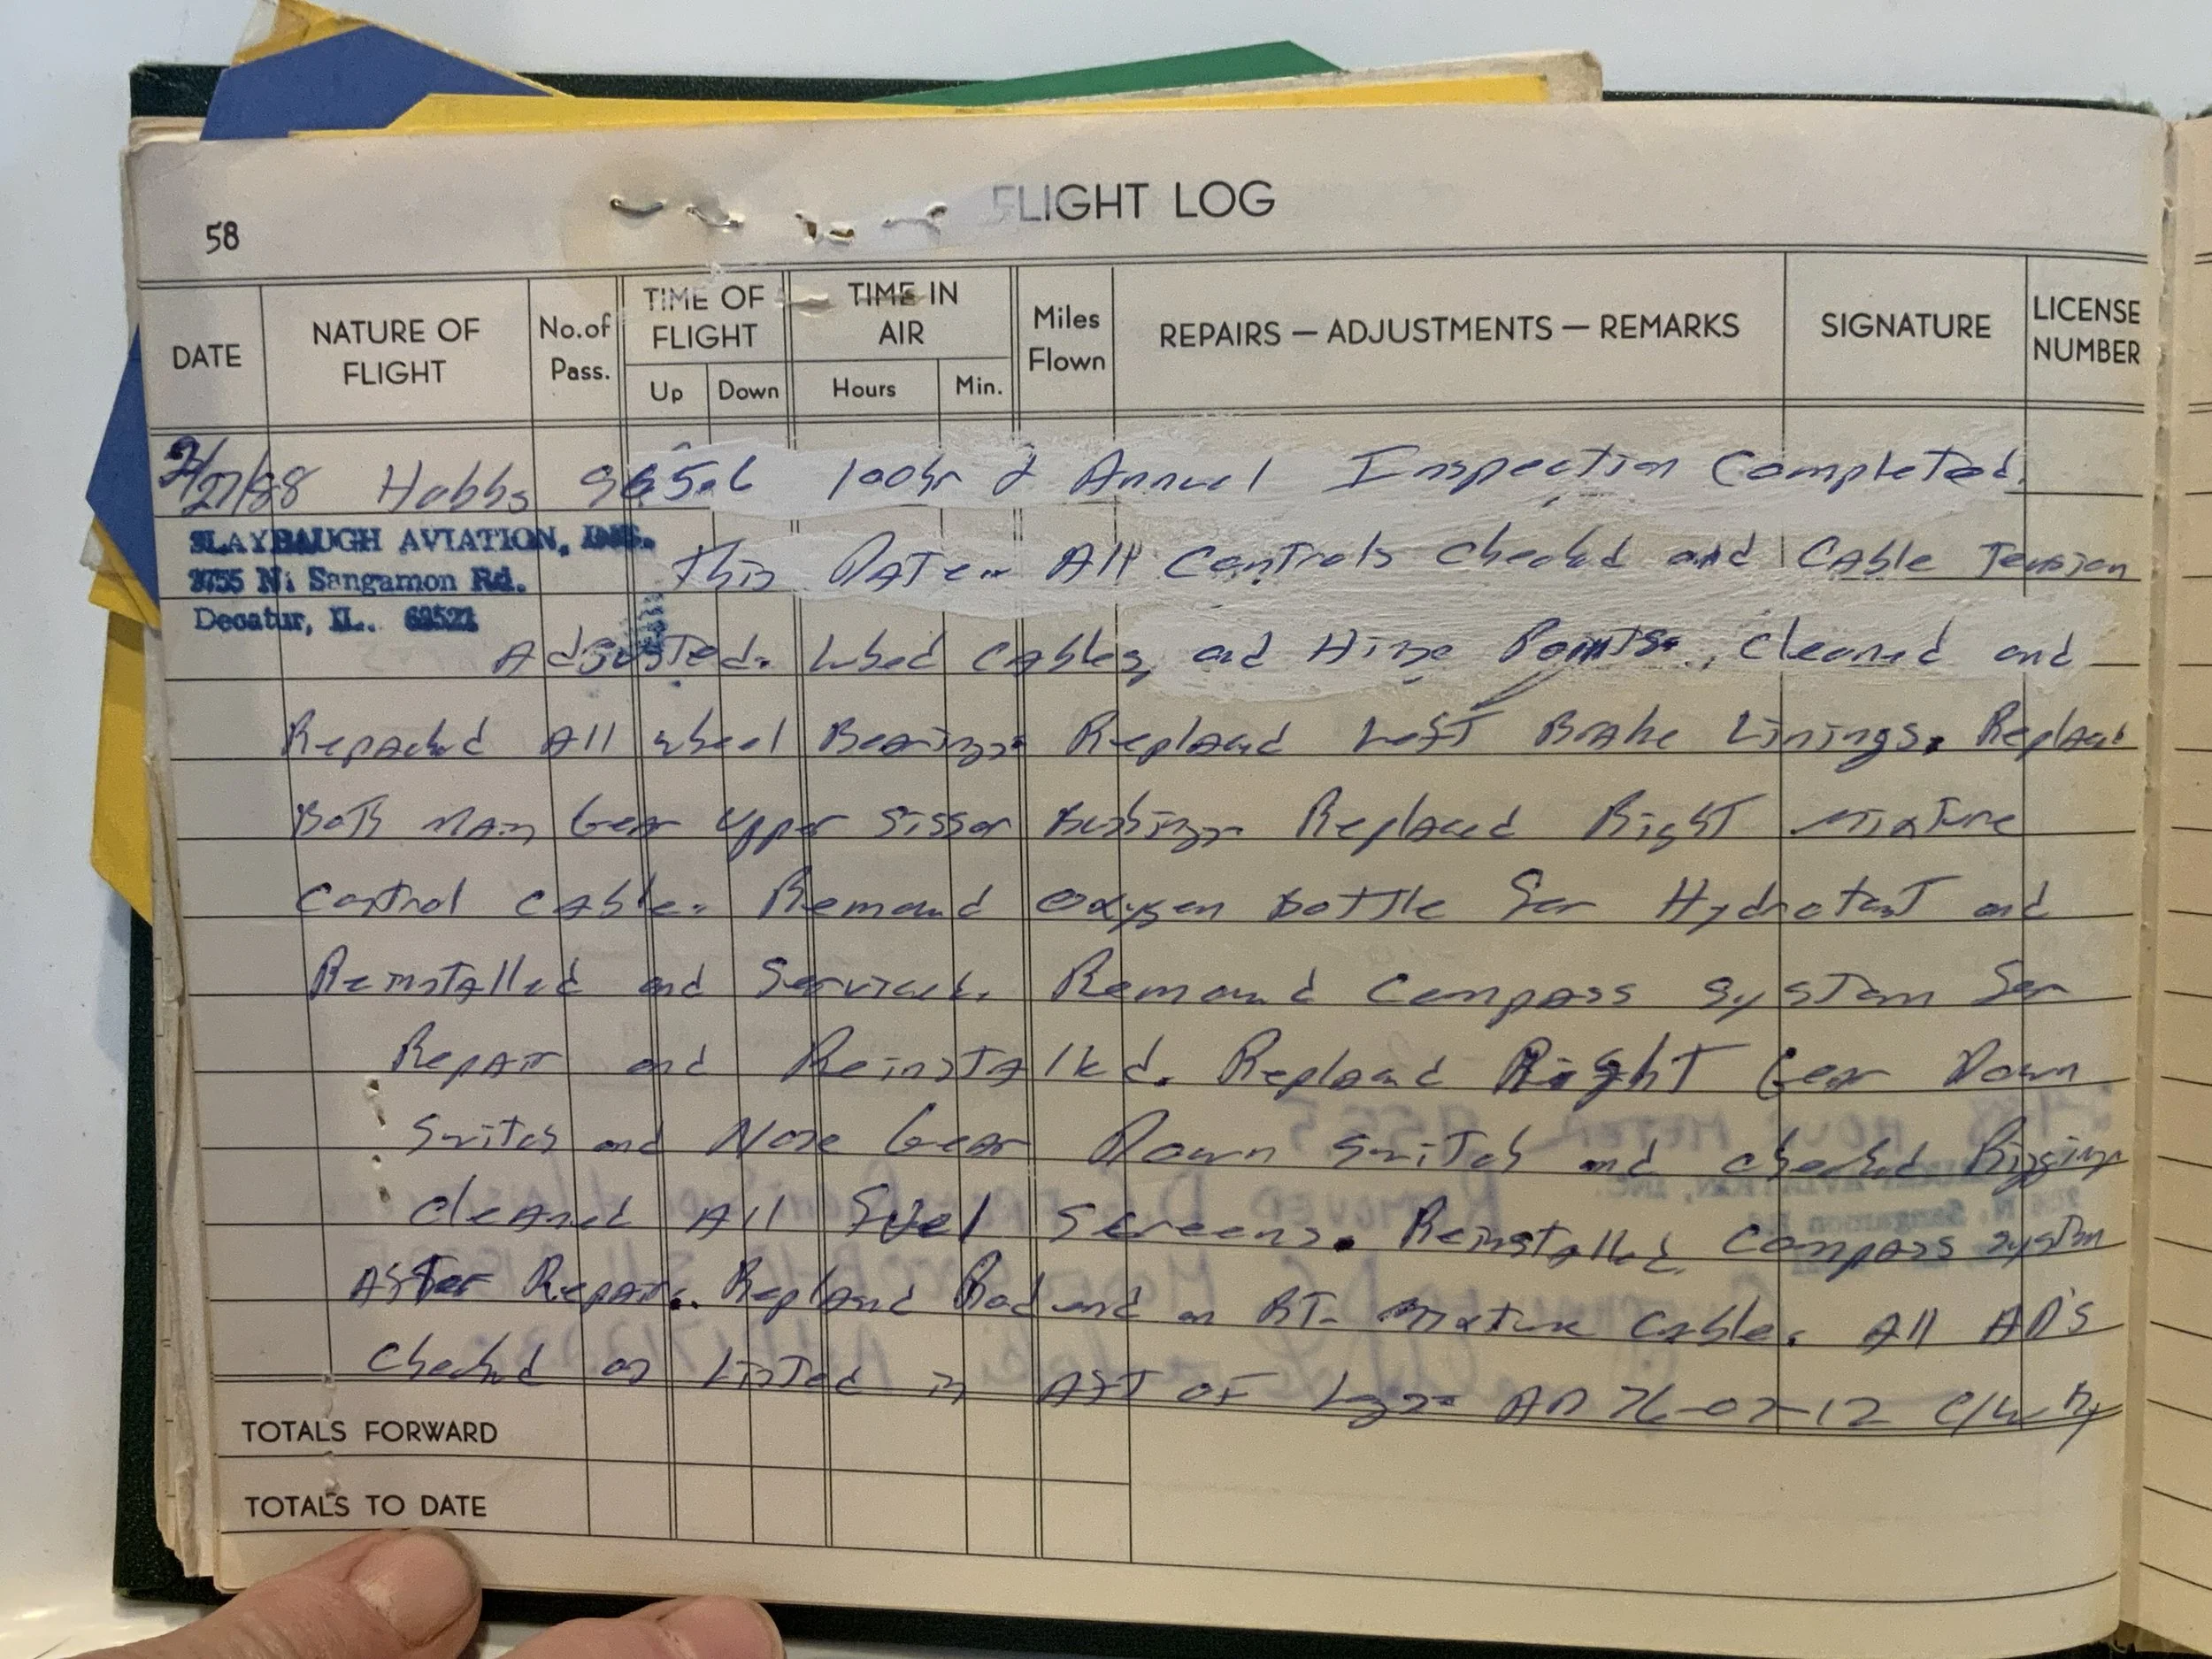 58
FLIGHT LOG
DATE
NATURE OF FLIGHT
No. of Pass.
TIME OF FLIGHT
Up
Down
TIME IN AIR
Hours
Min.
Miles Flown
REPAIRS — ADJUSTMENTS — REMARKS
SIGNATURE
LICENSE NUMBER
2/27/88 Hobbs 965.6 100hr & Annual Inspection Completed
SLAYBAUGH AVIATION, INC.
3755 N. Sangamon Rd.
Decatur, IL. 62521
This Date. All Controls Checked and Cable Tension
Adjusted. Lubed Cables, and Hinge Points, Cleaned and
Repacked All wheel Bearings. Replaced Left Brake Linings. Replaced
Both Main Gear Upper Sissor Bushings. Replaced Right Mixture
Control Cable. Removed Oxygen Bottle For Hydrotest and
Reinstalled and Serviced. Removed Compass System For
Repair and Reinstalled. Replaced Right Gear Down
Switch and Nose Gear Down Switch and checked Rigging
Cleaned All Fuel Screens. Reinstalled Compass System
After Repair. Replaced Rod end on RT. Mixture Cable. All AD'S
Checked as Listed in AFT OF Logs. AD 76-07-12 C/W By
TOTALS FORWARD
TOTALS TO DATE